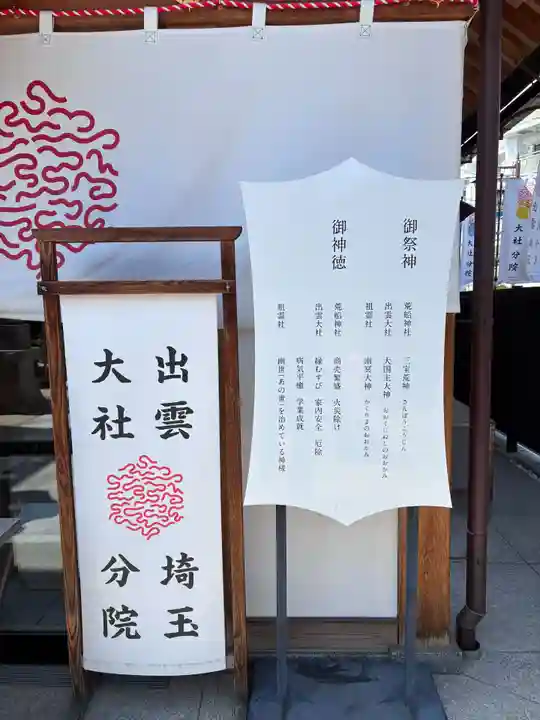 出雲大社
埼玉分院
御祭神
荒船神社 三宝荒神 さんぽうこうじん
出雲大社 大国主大神 おおくにぬしのおおかみ
祖霊社 幽冥大神 かくりよのおおかみ
御神徳
荒船神社 商売繁盛 火災除け
出雲大社 縁むすび 家内安全 厄除
病気平癒 学業成就
祖霊社 幽世(あの世)を治めている神様
大社分院